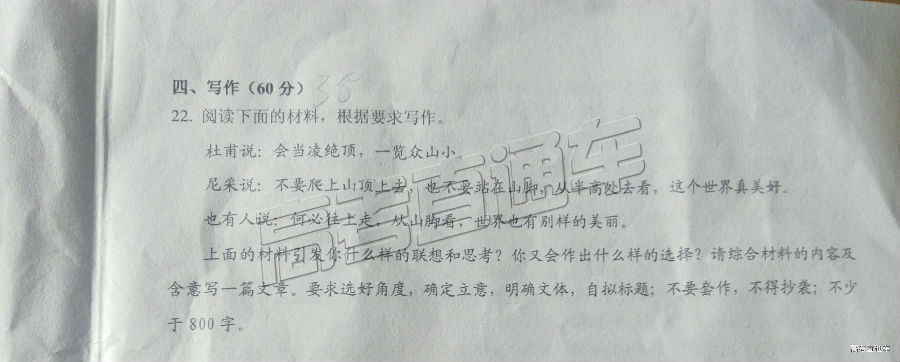 四、写作（60分） 36
22. 阅读下面的材料，根据要求写作。
杜甫说：会当凌绝顶，一览众山小。
尼采说：不要爬上山顶上去，也不要站在山脚，从半高处去看，这个世界真美好。
也有人说：何必往上走，从山脚看，世界也有别样的美丽。
上面的材料引发你什么样的联想和思考？你又会作出什么样的选择？请综合材料的内容及
含意写一篇文章。要求选好角度，确定立意，明确文体，自拟标题；不要套作，不得抄袭；不少
于 800 字。
高考直通车
高考直通车